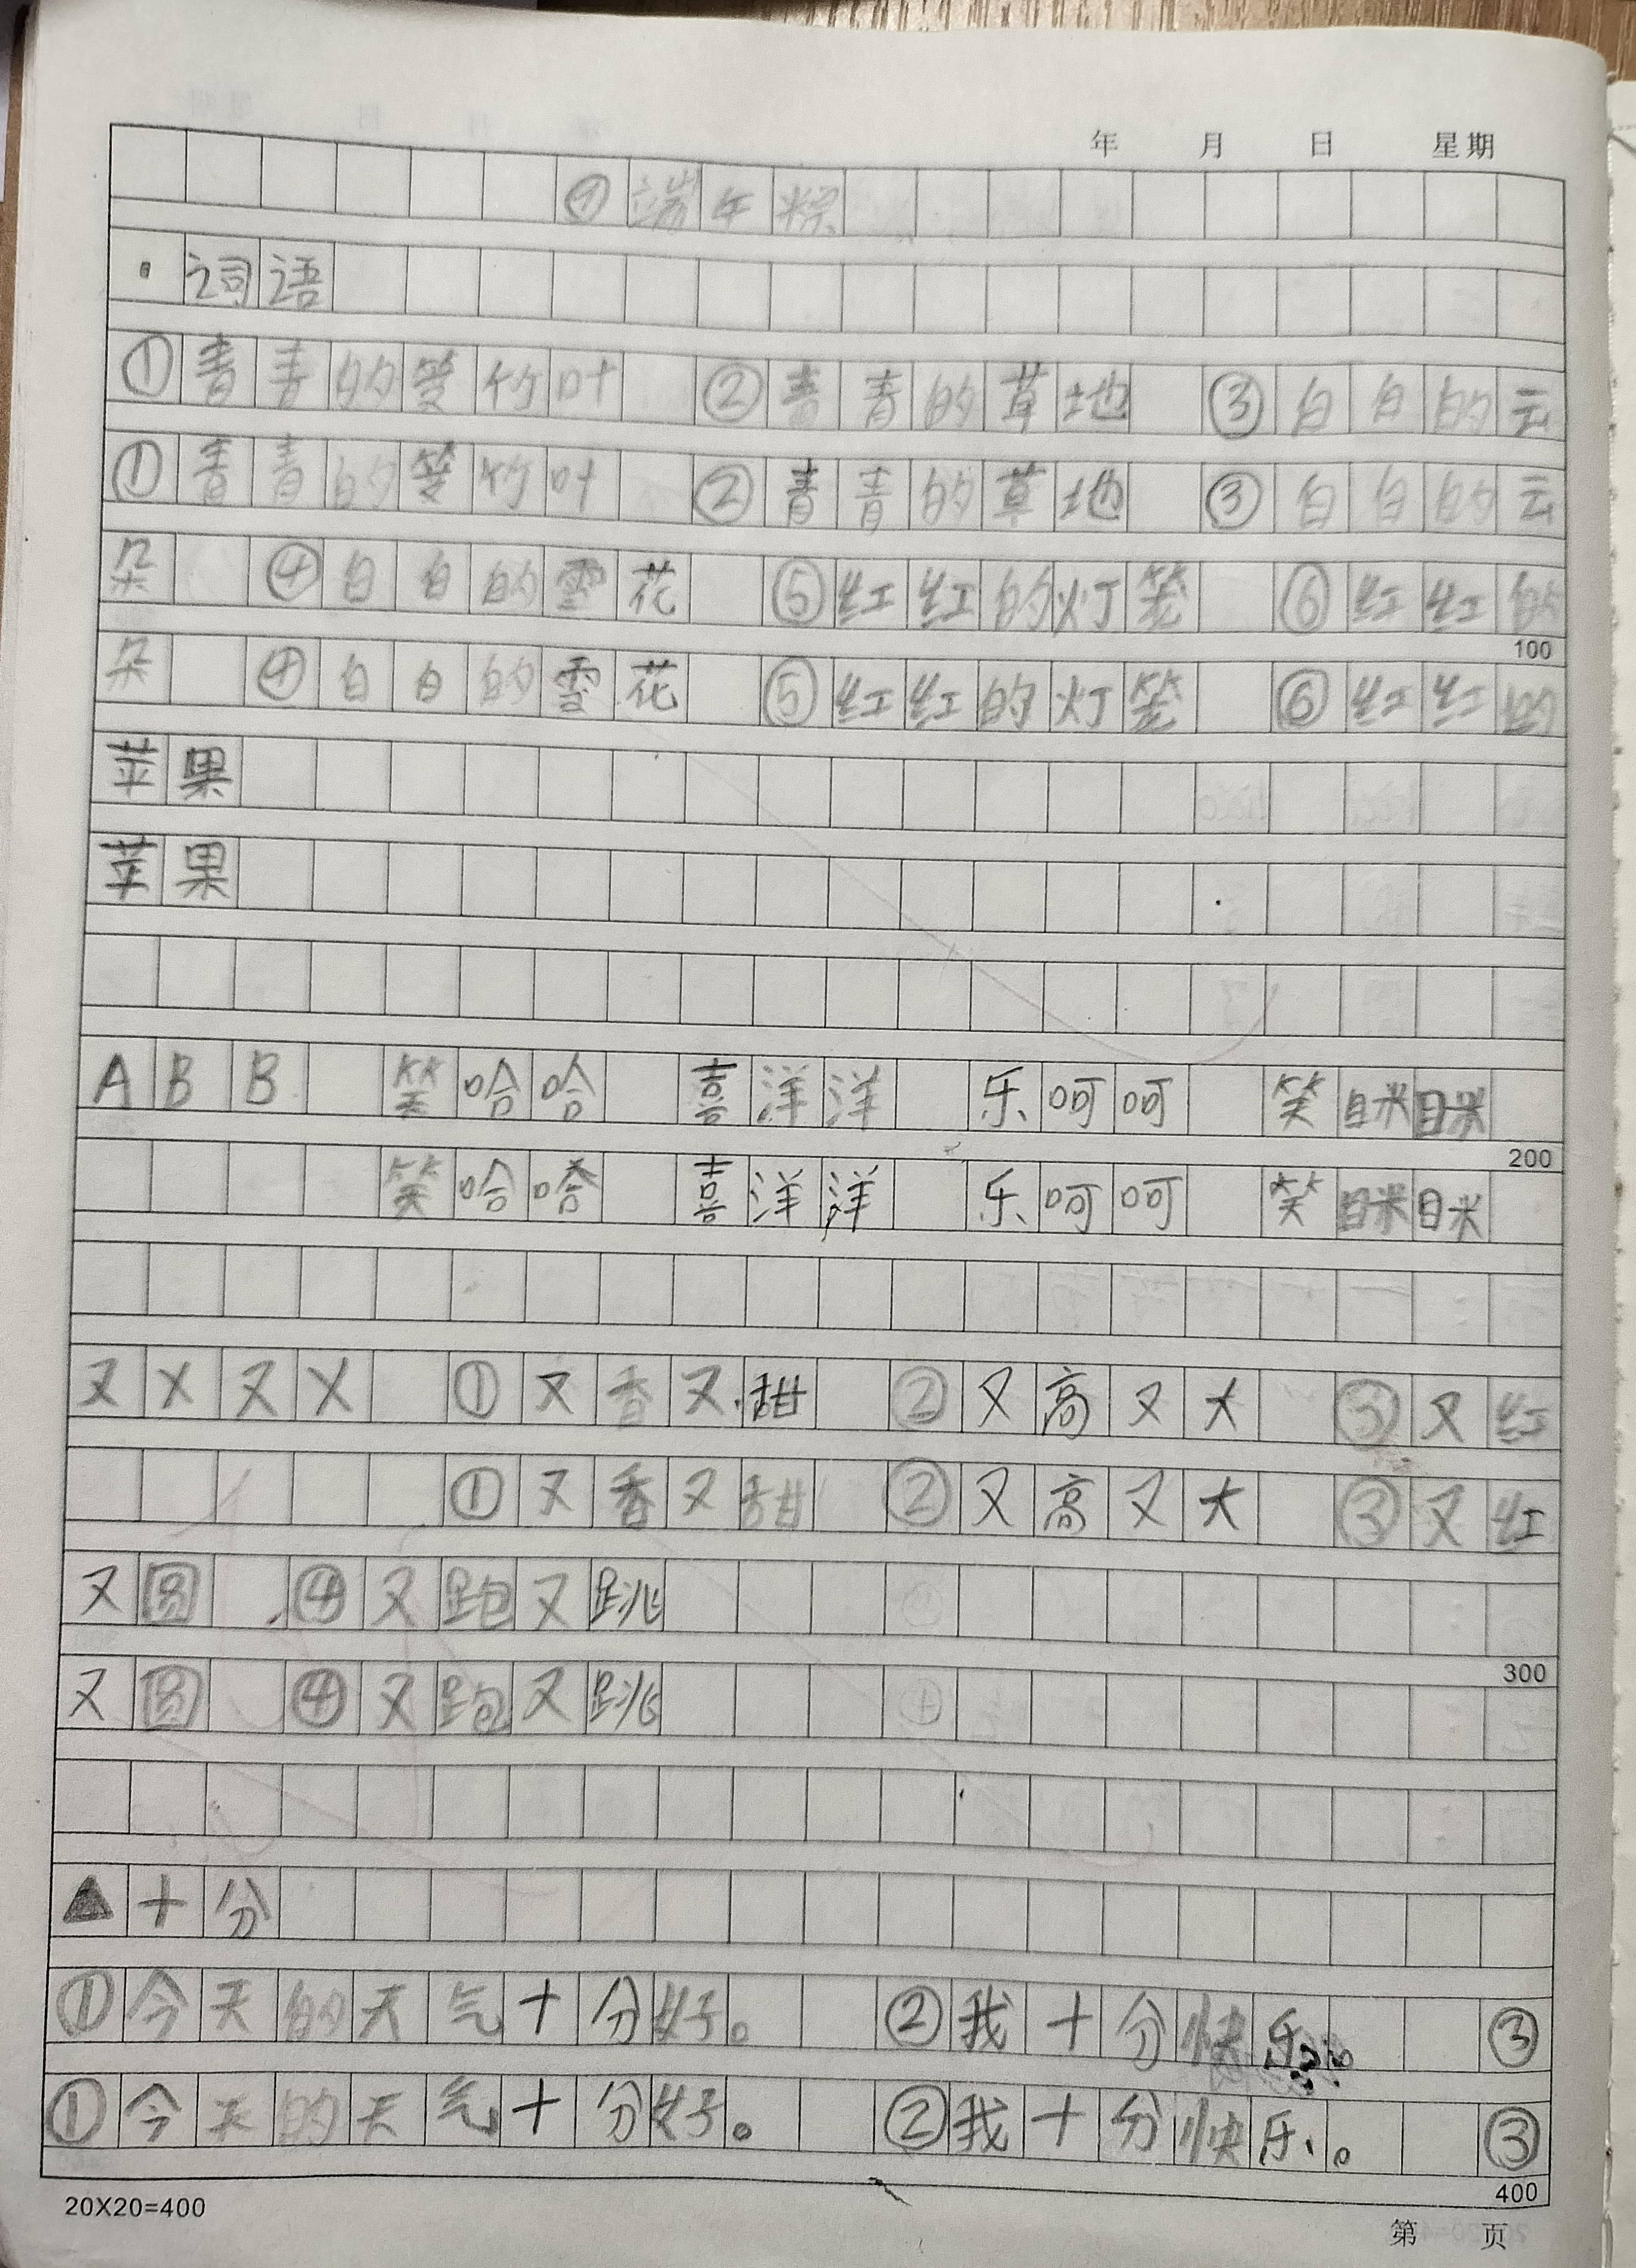 年 月 日 星期
⑨端午粽
·词语
①青青的箬竹叶 ②青青的草地 ③白白的云
①青青的箬竹叶 ②青青的草地 ③白白的云
朵 ④白白的雪花 ⑤红红的灯笼 ⑥红红的
100
朵 ④白白的雪花 ⑤红红的灯笼 ⑥红红的
苹果
苹果
ABB 笑哈哈 喜洋洋 乐呵呵 笑眯眯
200
笑哈哈 喜洋洋 乐呵呵 笑眯眯
又X又X ①又香又甜 ②又高又大 ③又红
①又香又甜 ②又高又大 ③又红
又圆 ④又跑又跳
300
又圆 ④又跑又跳
▲十分
①今天的天气十分好。 ②我十分快乐。 ③
①今天的天气十分好。 ②我十分快乐。 ③
400
20X20=400
第 页